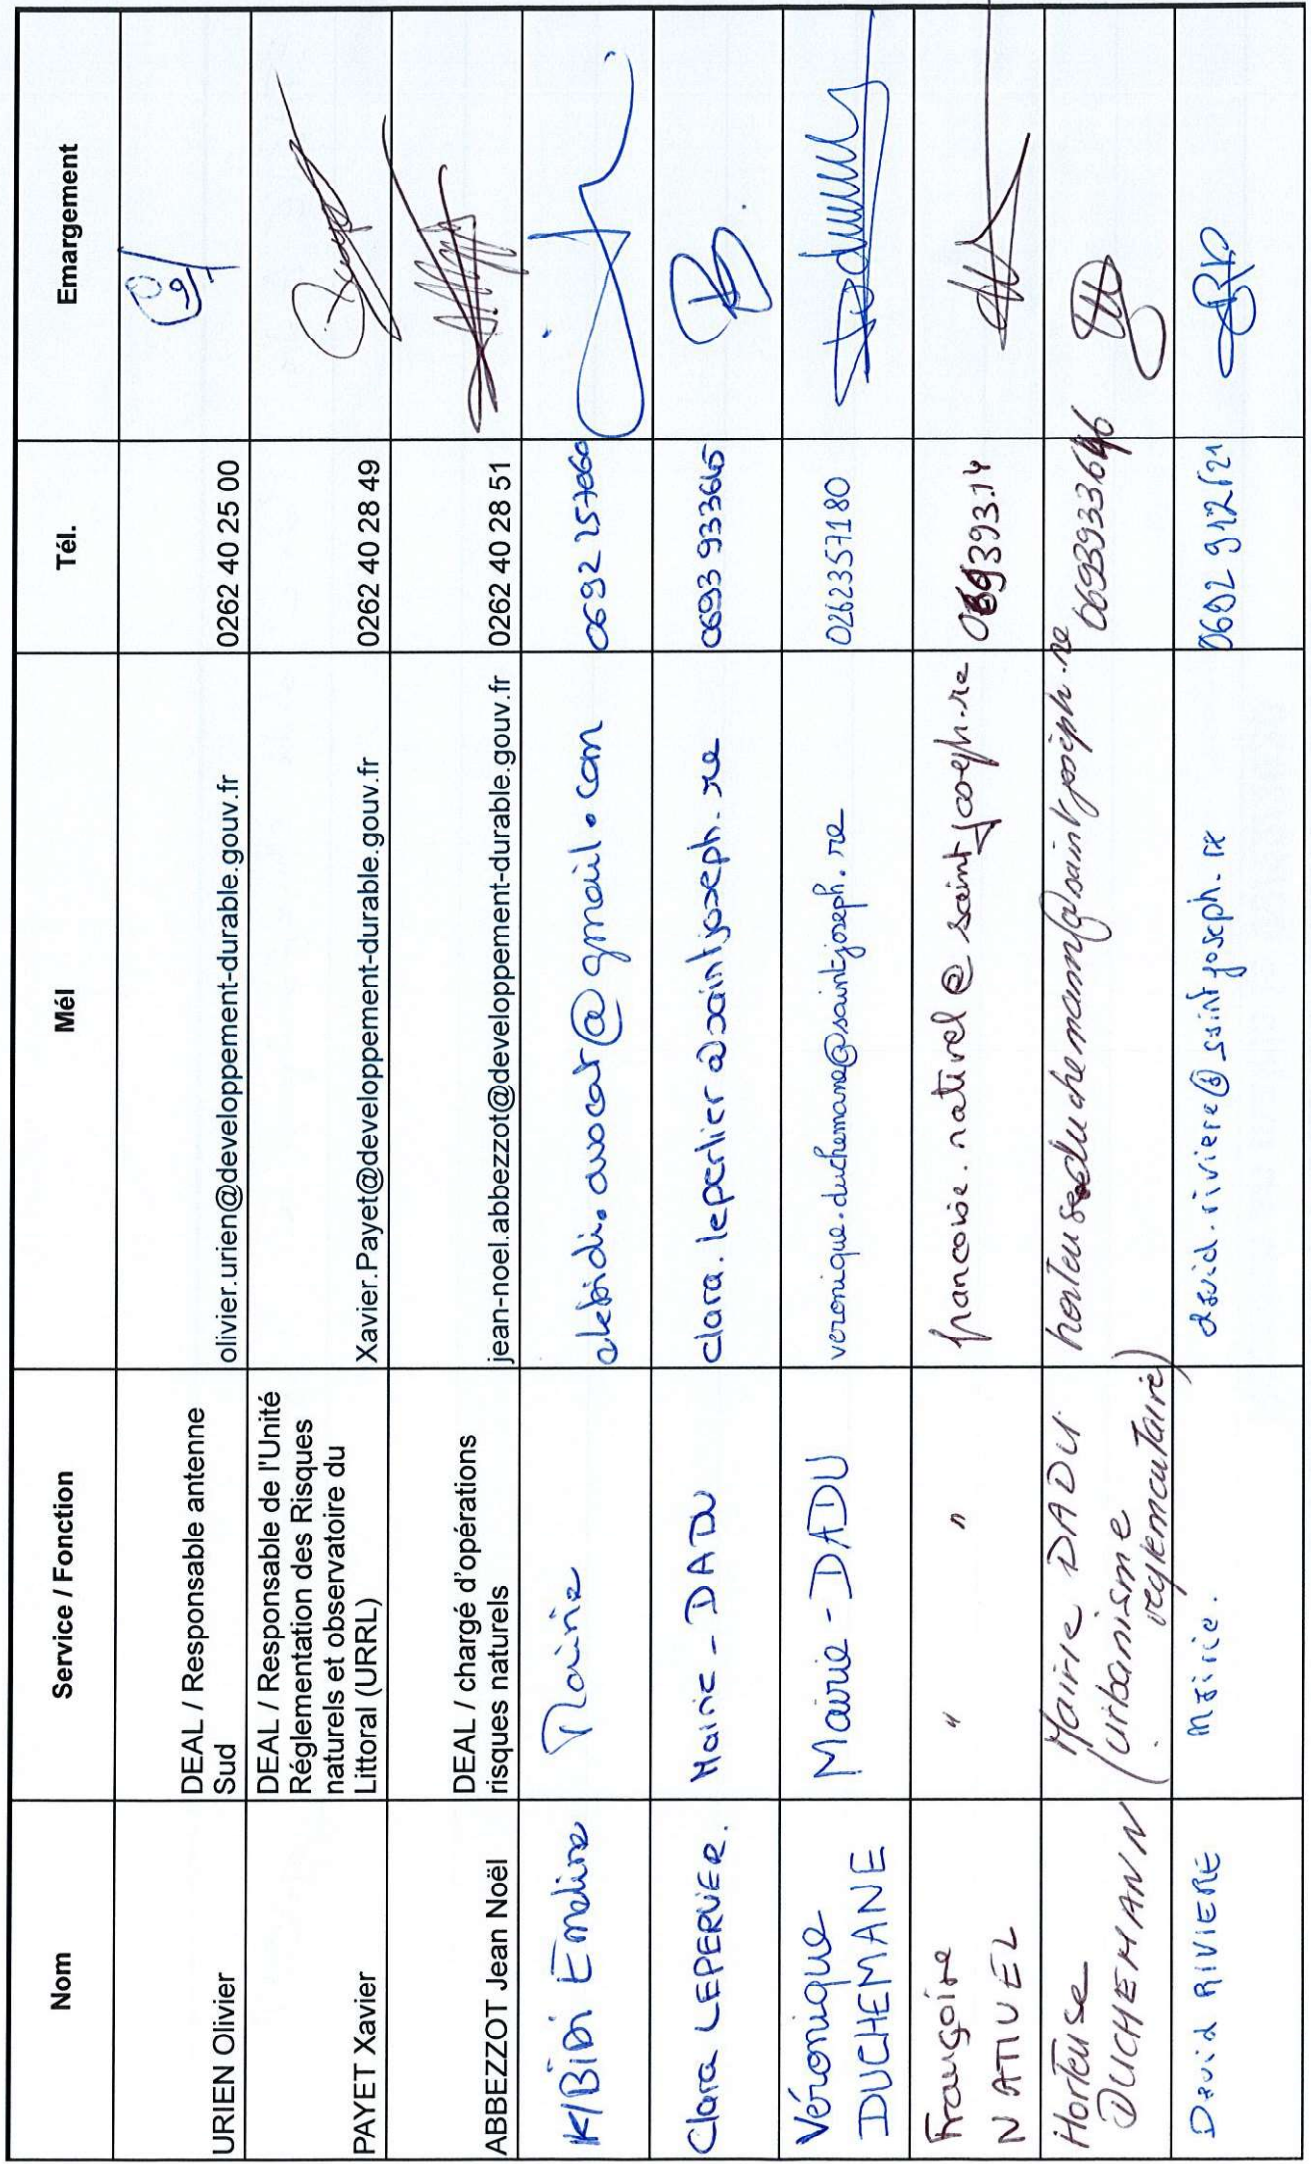 Nom Service / Fonction Mél Tél. Emargement
URIEN Olivier
DEAL / Responsable antenne
Sud
olivier.urien@developpement-durable.gouv.fr
0262 40 25 00
PAYET Xavier
DEAL / Responsable de l'Unité
Réglementation des Risques
naturels et observatoire du
Littoral (URRL)
Xavier.Payet@developpement-durable.gouv.fr
0262 40 28 49
ABBEZZOT Jean Noël
DEAL / chargé d'opérations
risques naturels
jean-noel.abbezzot@developpement-durable.gouv.fr
0262 40 28 51
K/BIDI Emeline
Mairie
0692 257060
Clara LEPERLIER.
Mairie - DADU
clara.leperlier@saintjoseph.re
Véronique
DUCHEMANE
Mairie - DADU
veronique.duchemane@saintjoseph.re
0262357180
Françoise
NATIVEL
" "
francoise.nativel@saintjoseph.re
Hortense
DUCHEMANN
Mairie DADU
(urbanisme
réglementaire)
0693933646
David RIVIERE
Mairie.
david.riviere@saintjoseph.re